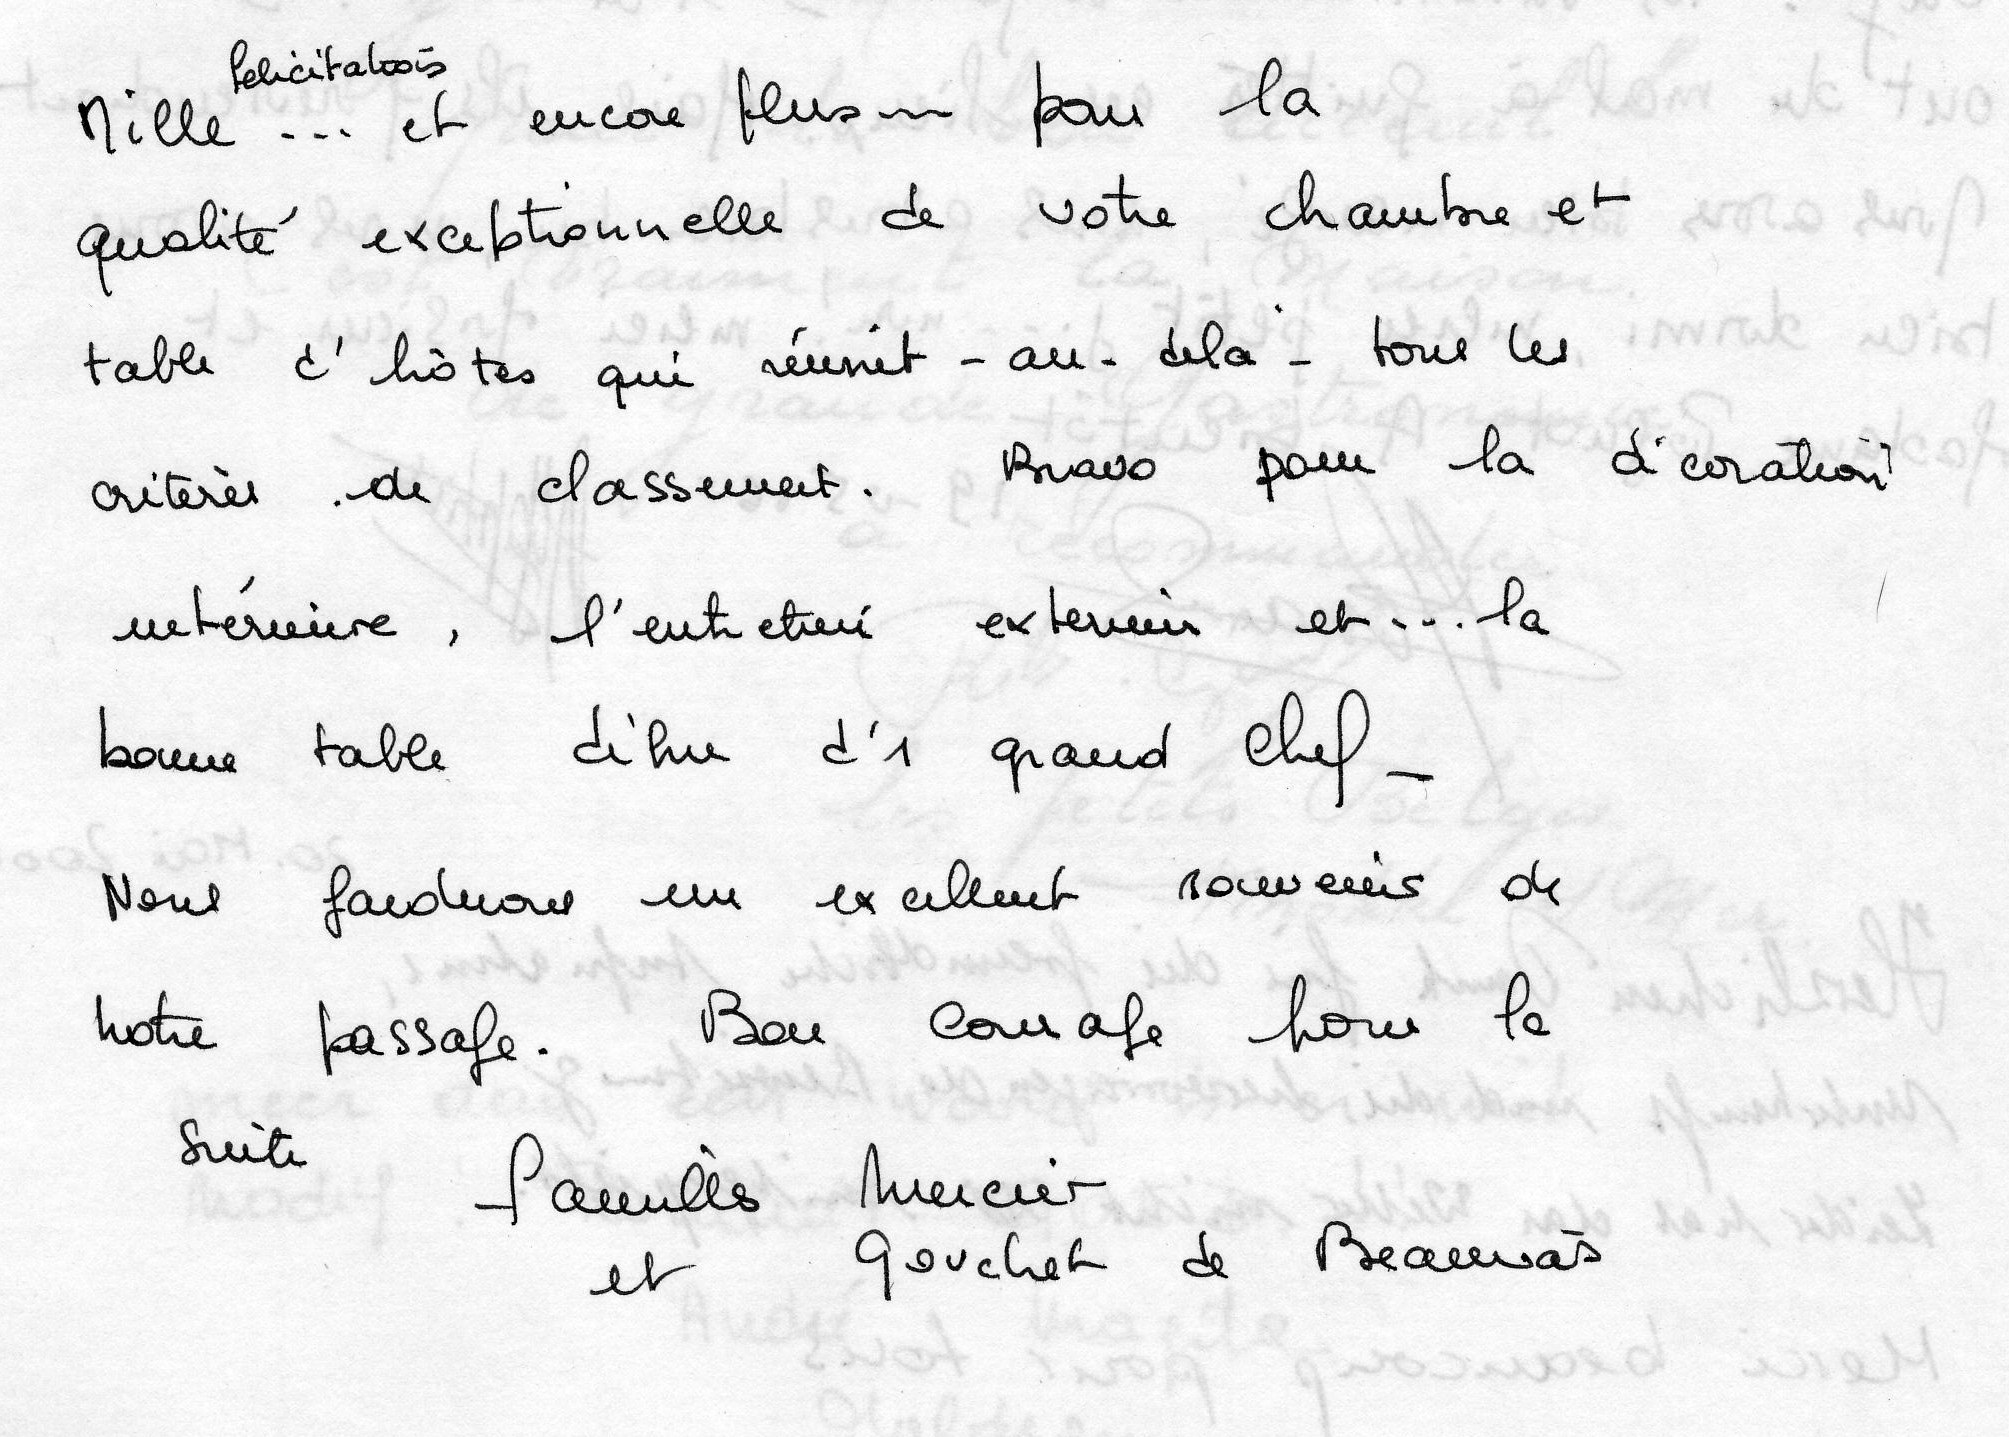 félicitations
Mille ... et encore plus... pour la
qualité exceptionnelle de votre chambre et
table d'hôtes qui réunit - au-delà - tous les
critères de classement. Bravo pour la décoration
intérieure, l'entretien extérieur et... la
bonne table digne d'1 grand Chef _
Nous garderons un excellent souvenir de
notre passage. Bon courage pour la
suite
Familles Mercier
et Gouchet de Beauvais